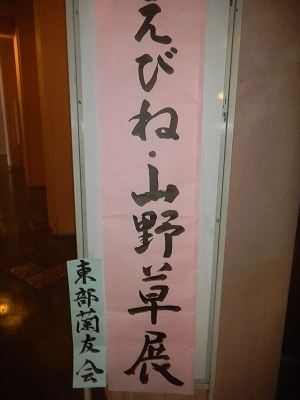 えびね・山野草展
東部蘭友会